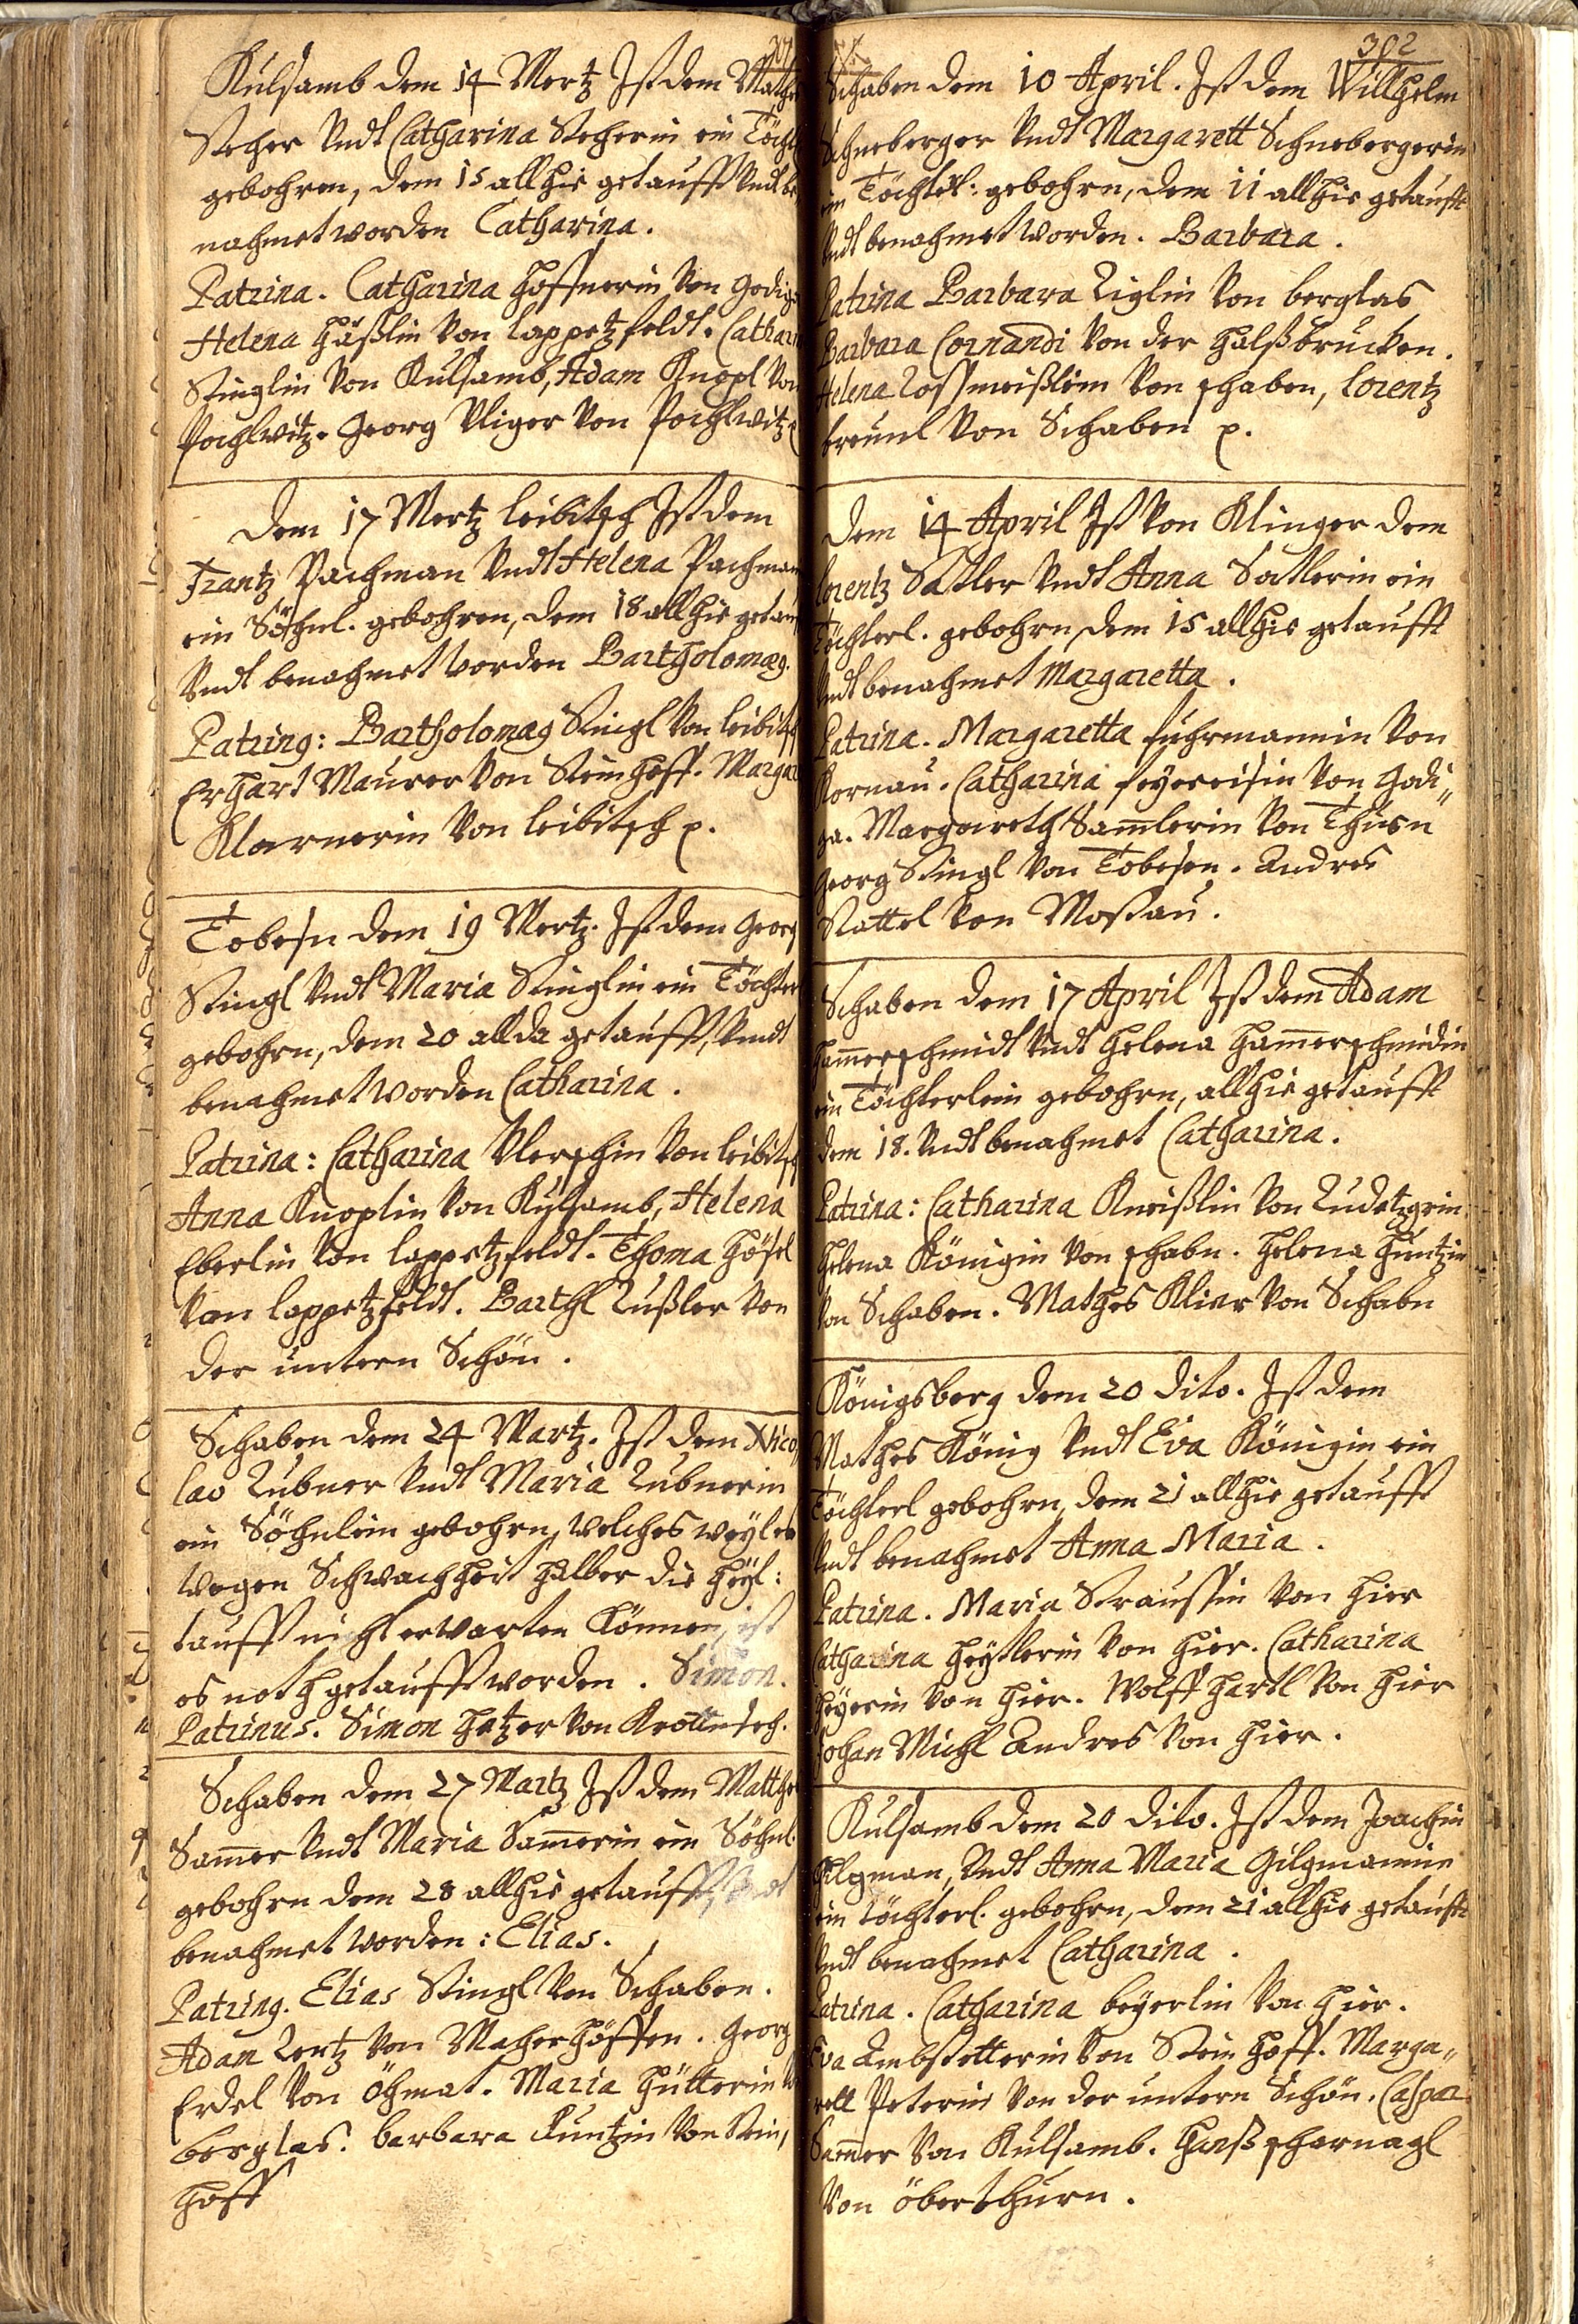 301
Kulsamb dem 14 Mertz Ist dem Mathes
Stecher Vndt Catharina Stecherin ein Töchtl
gebohren, dem 15 allhie getaufft Vndt be
nahmet worden Catharina.
Patrina. Catharina Hoffnerin Von Godig
Helena Häßlin Von Lappetzfeldt. Cathari
Stinglin Von Kulsamb, Adam Knopl Von
Pochlwitz. Georg Pliger Von Pochlwitz
Dem 17 Mertz Leibitsch Ist dem
Frantz Pachman Vndt Helena Pachman
ein Söhnl. gebohren, dem 18 allhie getau
Vndt benahmet worden Bartholomæg.
Patring: Bartholomæg Stingl Von Leibitsch
Erhart Maurer Von Steinhoff. Margar
Klarnerin Von Leibitsch p.
Tobesn dem 19 Mertz. Ist dem Georg
Stingl Vndt Maria Stinglin ein Töchter
gebohrn, dem 20 allda getaufft, Vndt
benahmet worden Catharina.
Patrina: Catharina Plerschin Von Leibitsch
Anna Knoplin Von Kulsamb, Helena
Eberlin Von Lappetzfeldt. Thoma Hösel
Von Lappetzfeldt. Barthl Zußler Von
der untern Schön.
Schaben dem 24 Martz. Ist dem Nico,,
lao Zubner Vndt Maria Zubnerin
ein Söhnlein gebohrn, welches weyl es
wegen Schwachheit halber die Heyl:
tauff nicht erwarten können, ist
es noth getaufft worden. Simon.
Patrinus. Simon Hetzer Von Krottensch.
Schaben dem 27 Martz Ist dem Matthe
Sam̄er Vndt Maria Sam̄erin ein Söhnl.
gebohrn dem 28 allhie getaufft, Vndt
benahmet worden: Elias.
Patring. Elias Stingl Von Schaben.
Adam Lertz Von Macherhöffen. Georg
Erdel Von Öhmat. Maria Hütterin Vo
berglas. barbara Kuntzin Von Stein,
hoff
302
Schaben dem 10 April. Ist dem Willhelm
Schneberger Vndt Margarett Schnebergerin
ein Töchterl: gebohrn, dem 11 allhie getaufft
Vndt benahmet worden. Barbara.
Patrina Barbara Ziglin Von berglas
Barbara Cornandi Von der Halßbrucken.
Helena Rossmeißlin Von schaben, Lorentz
breunl Von Schaben p.
Dem 14 April Ist Von Klinger dem
Lorentz Satler Vndt Anna Satlerin ein
Töchterl. gebohrn, dem 15 allhie getaufft
Vndt benahmet Margaretta.
Patrina. Margaretta fuhrmannin Von
Kornau. Catharina feyereisin Von Godi,,
ga. Margareth Sam̄lerin Von Thurn
Georg Stingl Von Tobesen. Andres
Nattel Von Mostau.
Schaben dem 17 April Ist dem Adam
Ham̄erschmidt Vndt Helena Ham̄erschmidin
ein Töchterlein gebohrn, allhie getaufft
dem 18. Vndt benahmet Catharina.
Patrina: Catharina Kneißlin Von Rudetzgrin
Helena Königin Von schabn. Helena Huntzin
Von Schaben. Mathes Klier Von Schabn
Königsberg dem 20 dito. Ist dem
Mathes König Vndt Eva Königin ein
Töchterl gebohrn, dem 21 allhie getaufft
Vndt benahmet Anna Maria.
Patrina. Maria Straussin Von hier
Catharina Heytlerin Von hier. Catharina
Heyerin Von hier. Wolff Hartl Von hier
Johan Michl Andres Von hier.
Kulsamb dem 20 dito. Ist dem Joachim
Gilgman, Vndt Anna Maria Gilgmannin
ein töchterl. gebohrn, dem 21 allhie getaufft
Vndt benahmet Catharina.
Patrina. Catharina beyerlin Von hier.
Eva Ambstetterin Von Steinhoff. Marga,,
rett Peterin Von der untern Schön. Caspar
Sam̄er Von Kulsamb. Hanß scharnagl
Von öberthurn.